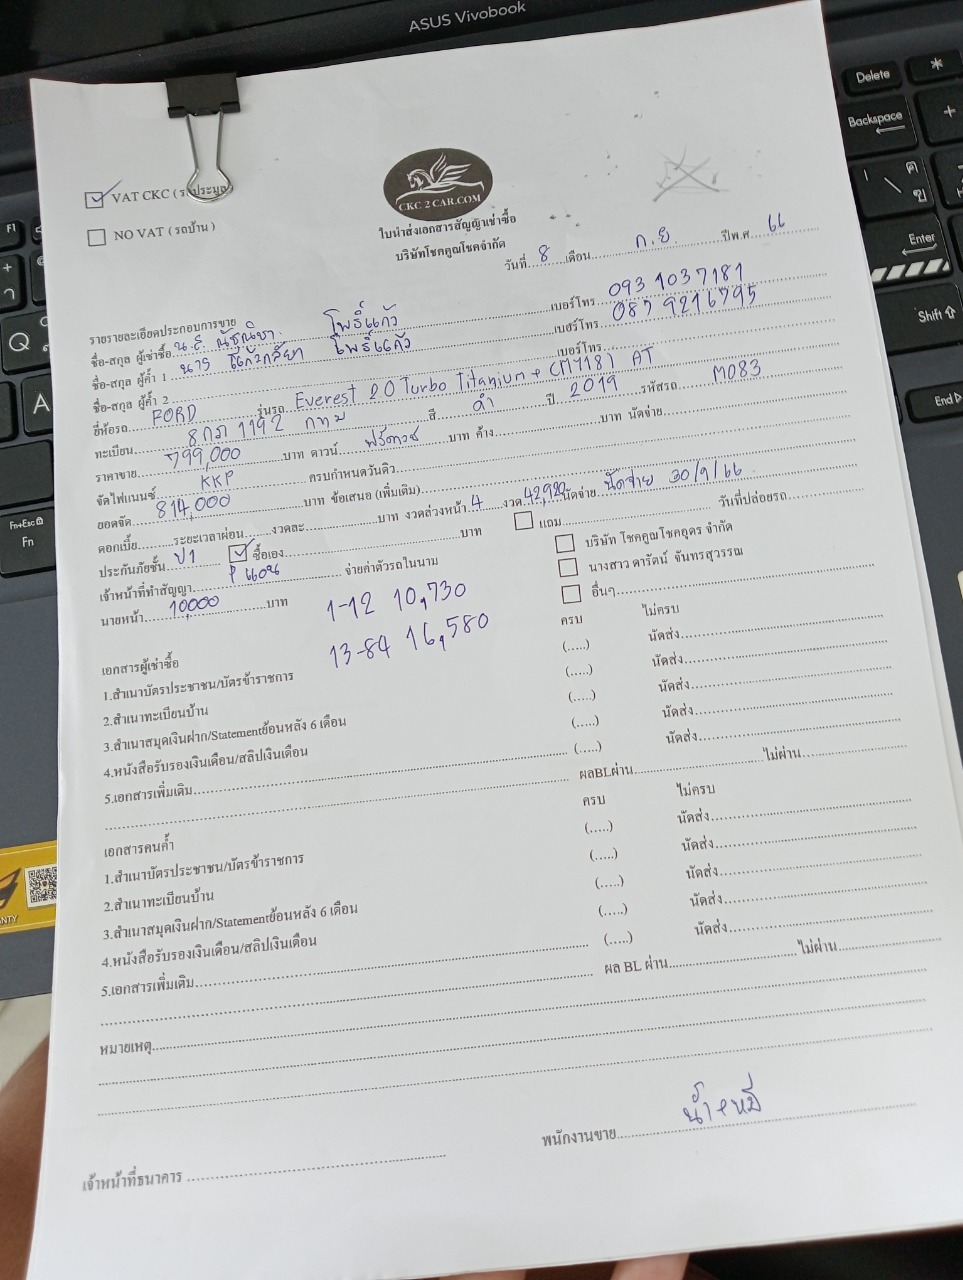 ASUS Vivobook
VAT CKC ( รถประมูล)
NO VAT ( รถบ้าน )
CKC 2 CAR.COM
ใบนำส่งเอกสารสัญญาเช่าซื้อ
บริษัทโชคคูณโชคจำกัด
วันที่ 8 เดือน ก.ย. ปีพ.ศ. 66
รายละเอียดประกอบการขาย
ชื่อ-สกุล ผู้เช่าซื้อ น.ส โพธิ์แก้ว เบอร์โทร 093 1037181
ชื่อ-สกุล ผู้ค้ำ 1 โพธิ์แก้ว เบอร์โทร 087 9216795
ชื่อ-สกุล ผู้ค้ำ 2 เบอร์โทร
ยี่ห้อรถ FORD รุ่นรถ Everest 2.0 Turbo Titanium + (MY18) AT
ทะเบียน 8กภ 1192 กทม สี ดำ ปี 2019 รหัสรถ M083
ราคาขาย 799,000 บาท ดาวน์ ฟรีดาวน์ บาท ค้าง บาท นัดจ่าย
จัดไฟแนนซ์ KKP ครบกำหนดวันดิว
ยอดจัด 814,000 บาท ข้อเสนอ (เพิ่มเติม)
ดอกเบี้ย ระยะเวลาผ่อน งวดละ บาท งวดล่วงหน้า 4 งวด 42,920 นัดจ่าย นัดจ่าย 30/9/66
ประกันภัยชั้น ป1 ซื้อเอง บาท แถม วันที่ปล่อยรถ
เจ้าหน้าที่ทำสัญญา จ่ายค่าตัวรถในนาม บริษัท โชคคูณโชคอุดร จำกัด
นางสาว ดารัตน์ จันทรสุวรรณ
อื่นๆ
นายหน้า 10,000 บาท
1-12 10,730
13-84 16,580
เอกสารผู้เช่าซื้อ ครบ ไม่ครบ
1.สำเนาบัตรประชาชน/บัตรข้าราชการ (.....) นัดส่ง
2.สำเนาทะเบียนบ้าน (.....) นัดส่ง
3.สำเนาสมุดเงินฝาก/Statementย้อนหลัง 6 เดือน (.....) นัดส่ง
4.หนังสือรับรองเงินเดือน/สลิปเงินเดือน (.....) นัดส่ง
5.เอกสารเพิ่มเติม (.....) นัดส่ง
ผลBLผ่าน ไม่ผ่าน
เอกสารคนค้ำ ครบ ไม่ครบ
1.สำเนาบัตรประชาชน/บัตรข้าราชการ (.....) นัดส่ง
2.สำเนาทะเบียนบ้าน (.....) นัดส่ง
3.สำเนาสมุดเงินฝาก/Statementย้อนหลัง 6 เดือน (.....) นัดส่ง
4.หนังสือรับรองเงินเดือน/สลิปเงินเดือน (.....) นัดส่ง
5.เอกสารเพิ่มเติม (.....) นัดส่ง
ผล BL ผ่าน ไม่ผ่าน
หมายเหตุ
พนักงานขาย
เจ้าหน้าที่ธนาคาร
Delete
Backspace
Enter
Shift
End
Fn+Esc
Fn
F1
Q
A